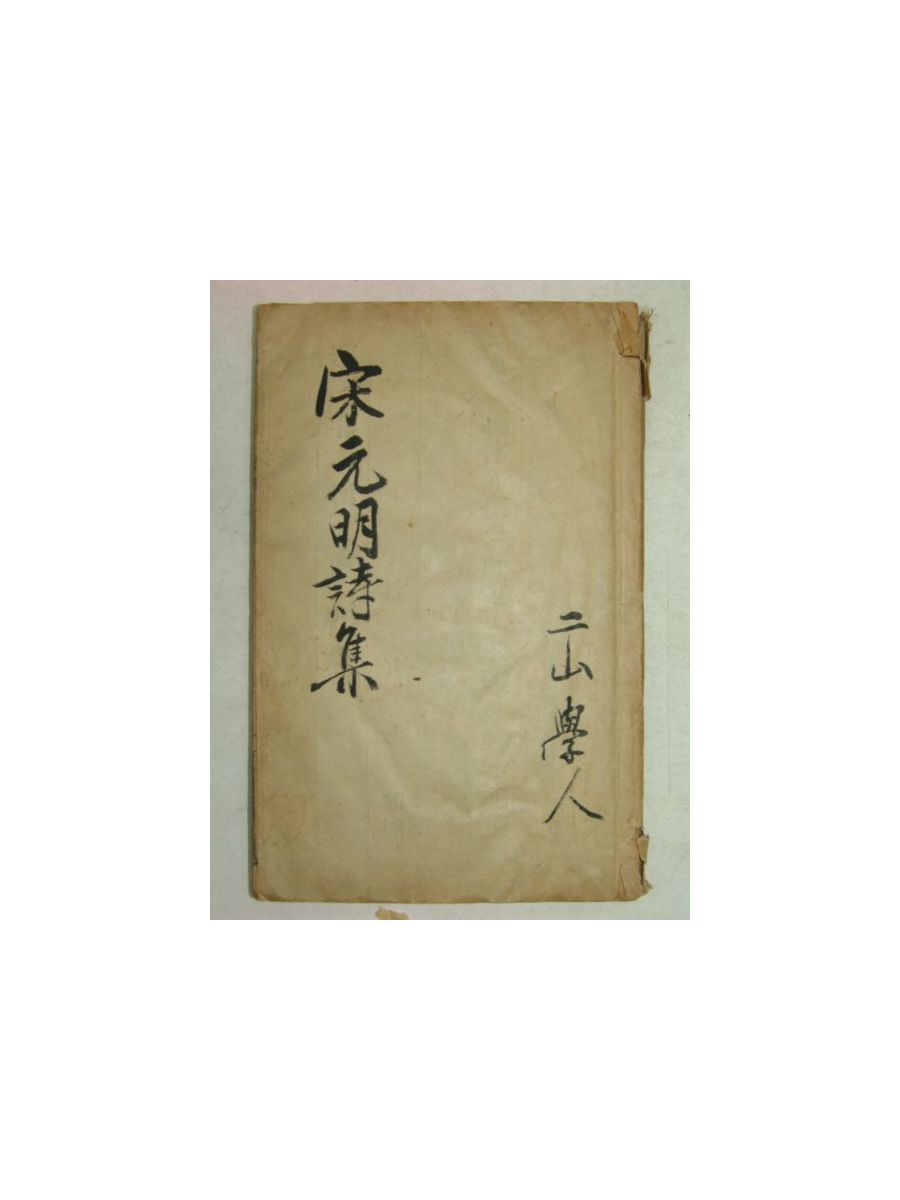 宋元明詩集
二山學人